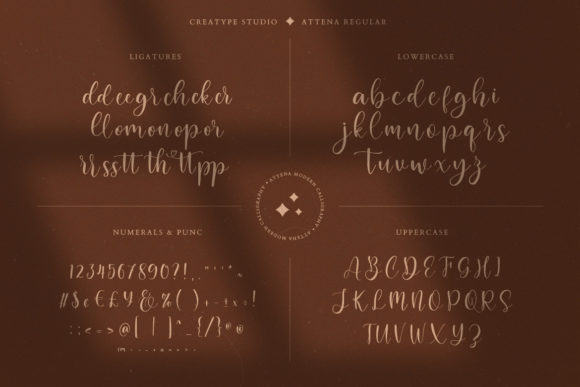 CREATYPE STUDIO ✦ ATTENA REGULAR
LIGATURES
ddeegrchckcr
llomonopor
rrsstt th ttpp
LOWERCASE
abcdefghi
jklmnopqrs
tuvwxyz
ATTENA MODERN CALLIGRAPHY • ATTENA MODERN CALLIGRAPHY •
NUMERALS & PUNC
1234567890?!,.
#$¢€£¥&%()
:;<=>@[|]^_{/}
UPPERCASE
ABCDEFGHI
JKLMNOPQRS
TUVWXYZ